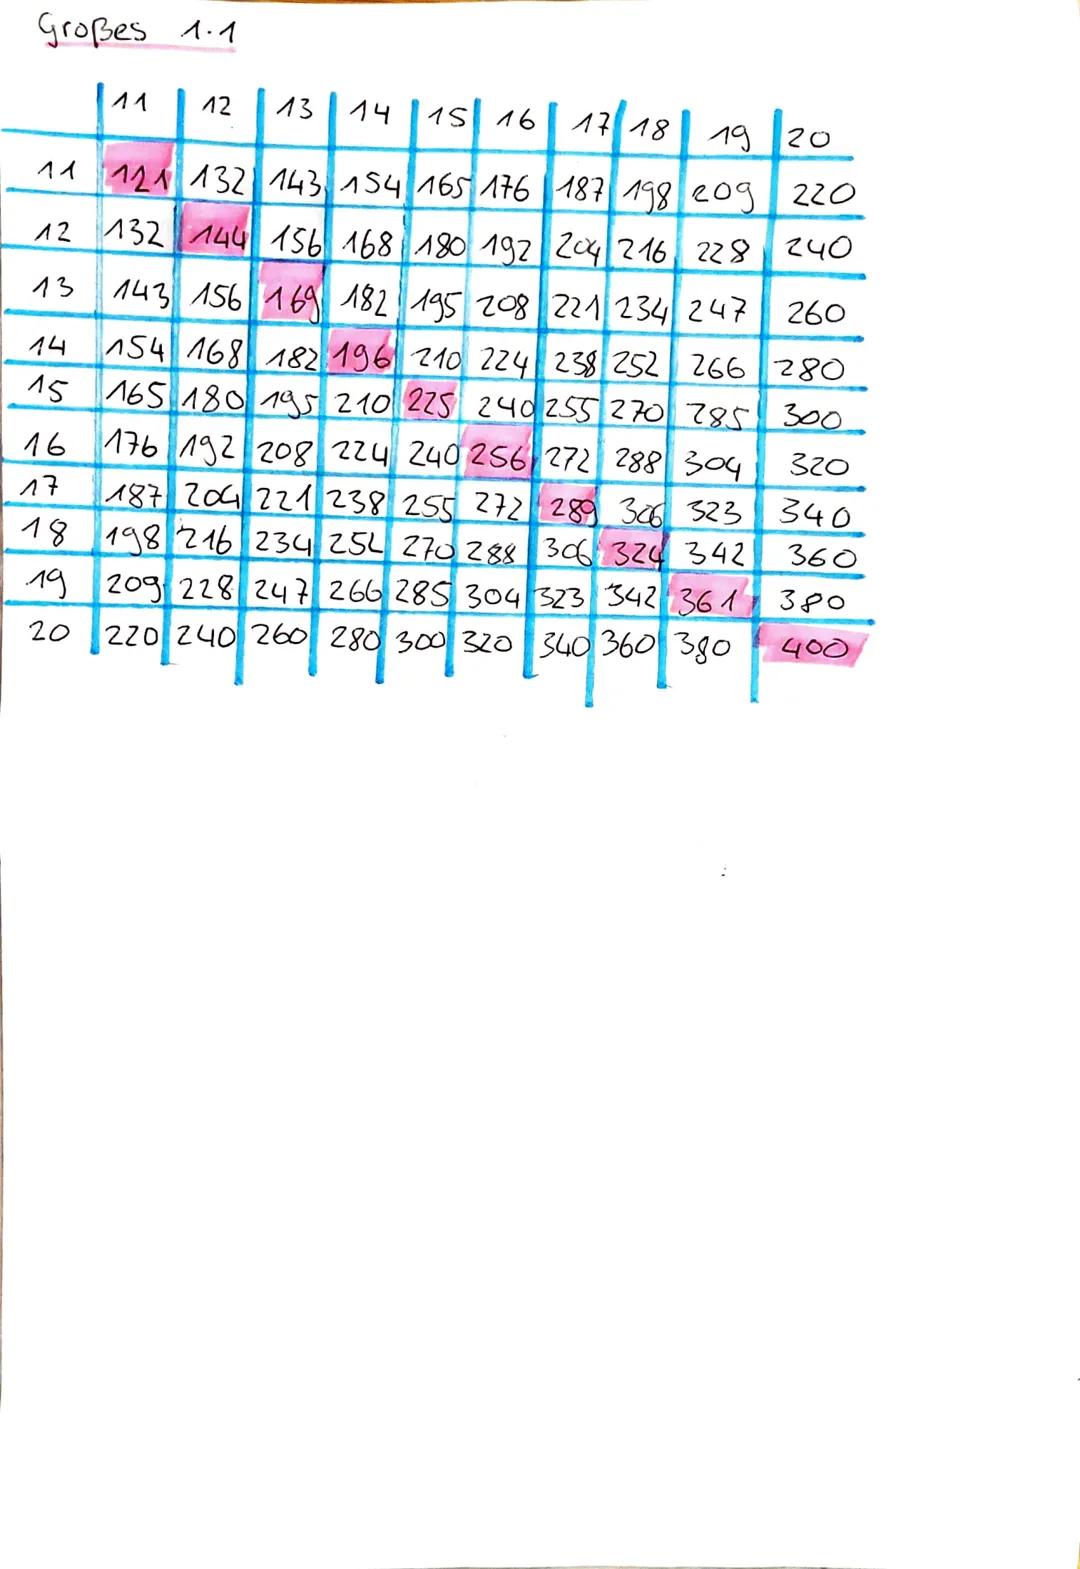 Großes 1·1
11 12 13 14 15 16 17 18 19 20
11 121 132 143 154 165 176 187 198 209 220
12 132 144 156 168 180 192 204 216 228 240
13 143 156 169 182 195 208 221 234 247 260
14 154 168 182 196 210 224 238 252 266 280
15 165 180 195 210 225 240 255 270 285 300
16 176 192 208 224 240 256 272 288 304 320
17 187 204 221 238 255 272 289 306 323 340
18 198 216 234 252 270 288 306 324 342 360
19 209 228 247 266 285 304 323 342 361 380
20 220 240 260 280 300 320 340 360 380 400